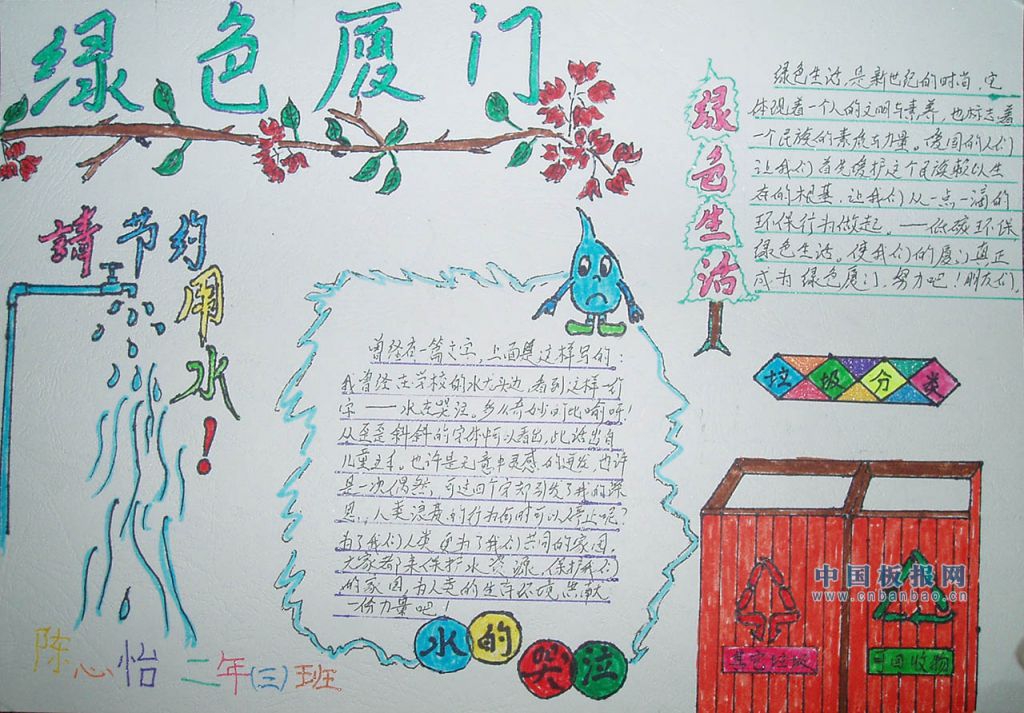 绿色厦门
請节约用水!
绿色生活
绿色生活,是新世纪的时尚,它
体现着一个人的文明与素养,也标志着
一个民族的素质与力量。爱国的人们
让我们首先爱护这个民族赖以生
存的根基,让我们从一点一滴的
环保行为做起。——低碳环保
绿色生活。使我们的厦门真正
成为绿色厦门,努力吧!朋友们。
曾经在一篇文字,上面是这样写的:
我曾经在学校的水龙头边,看到这样一行
字——水在哭泣。多么奇妙的比喻呀!
从歪歪斜斜的字体可以看出,此话出自
儿童之手。也许是无意中灵感的迸发,也许
是一次偶然,可这四个字却引发了我的深
思。人类浪费的行为何时可以停止呢?
为了我们人类 更为了我们共同的家园,
大家都来保护水资源,保护我们
的家园,为人类的生存环境贡献
一份力量吧!
水的哭泣
垃圾分类
其它垃圾
可回收物
中国板报网
www.cnbanbao.cn
陈心怡 二年(三)班